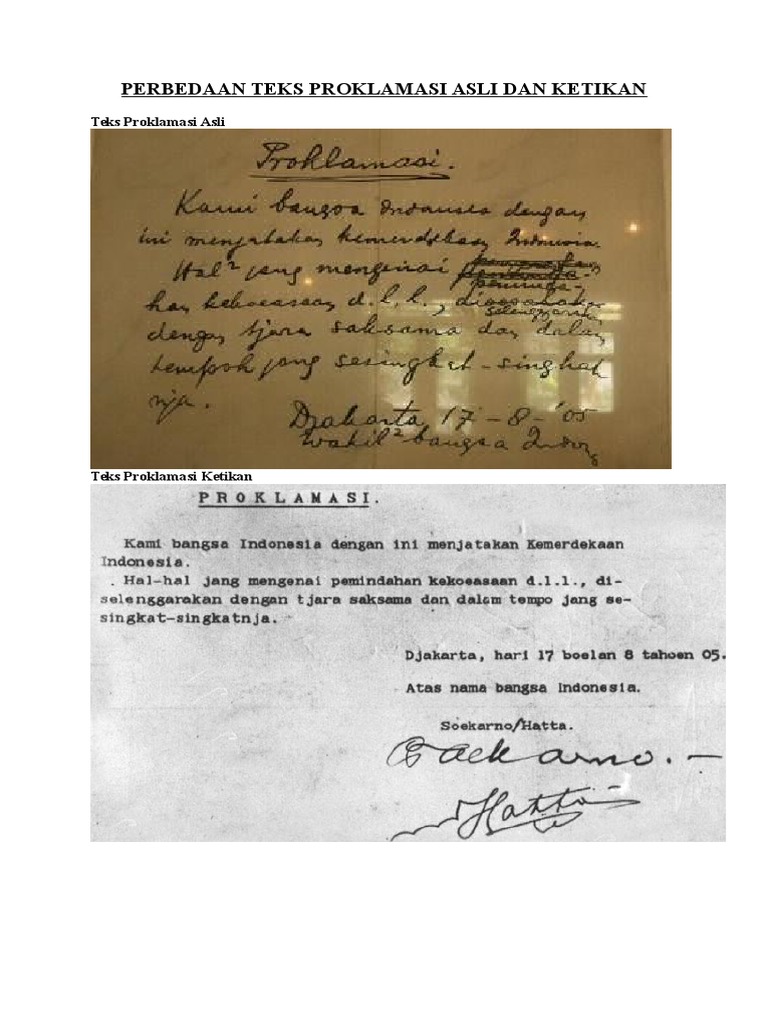 PERBEDAAN TEKS PROKLAMASI ASLI DAN KETIKAN
Teks Proklamasi Asli
Proklamasi.
Kami bangsa Indonesia dengan
ini menjatakan kemerdekaan Indonesia.
Hal² jang mengenai
peminda-
han kekoeasaan d.l.l.,
selenggarakan
dengan tjara saksama dan dalam
tempoh jang sesingkat-singkat
nja.
Djakarta 17 - 8 - '05
Wakil² bangsa Indon
Teks Proklamasi Ketikan
P R O K L A M A S I .
Kami bangsa Indonesia dengan ini menjatakan Kemerdekaan
Indonesia.
. Hal-hal jang mengenai pemindahan kekoeasaan d.l.l., di-
selenggarakan dengan tjara saksama dan dalam tempo jang se-
singkat-singkatnja.
Djakarta, hari 17 boelan 8 tahoen 05.
Atas nama bangsa Indonesia.
Soekarno/Hatta.
Soekarno.-
Hatta